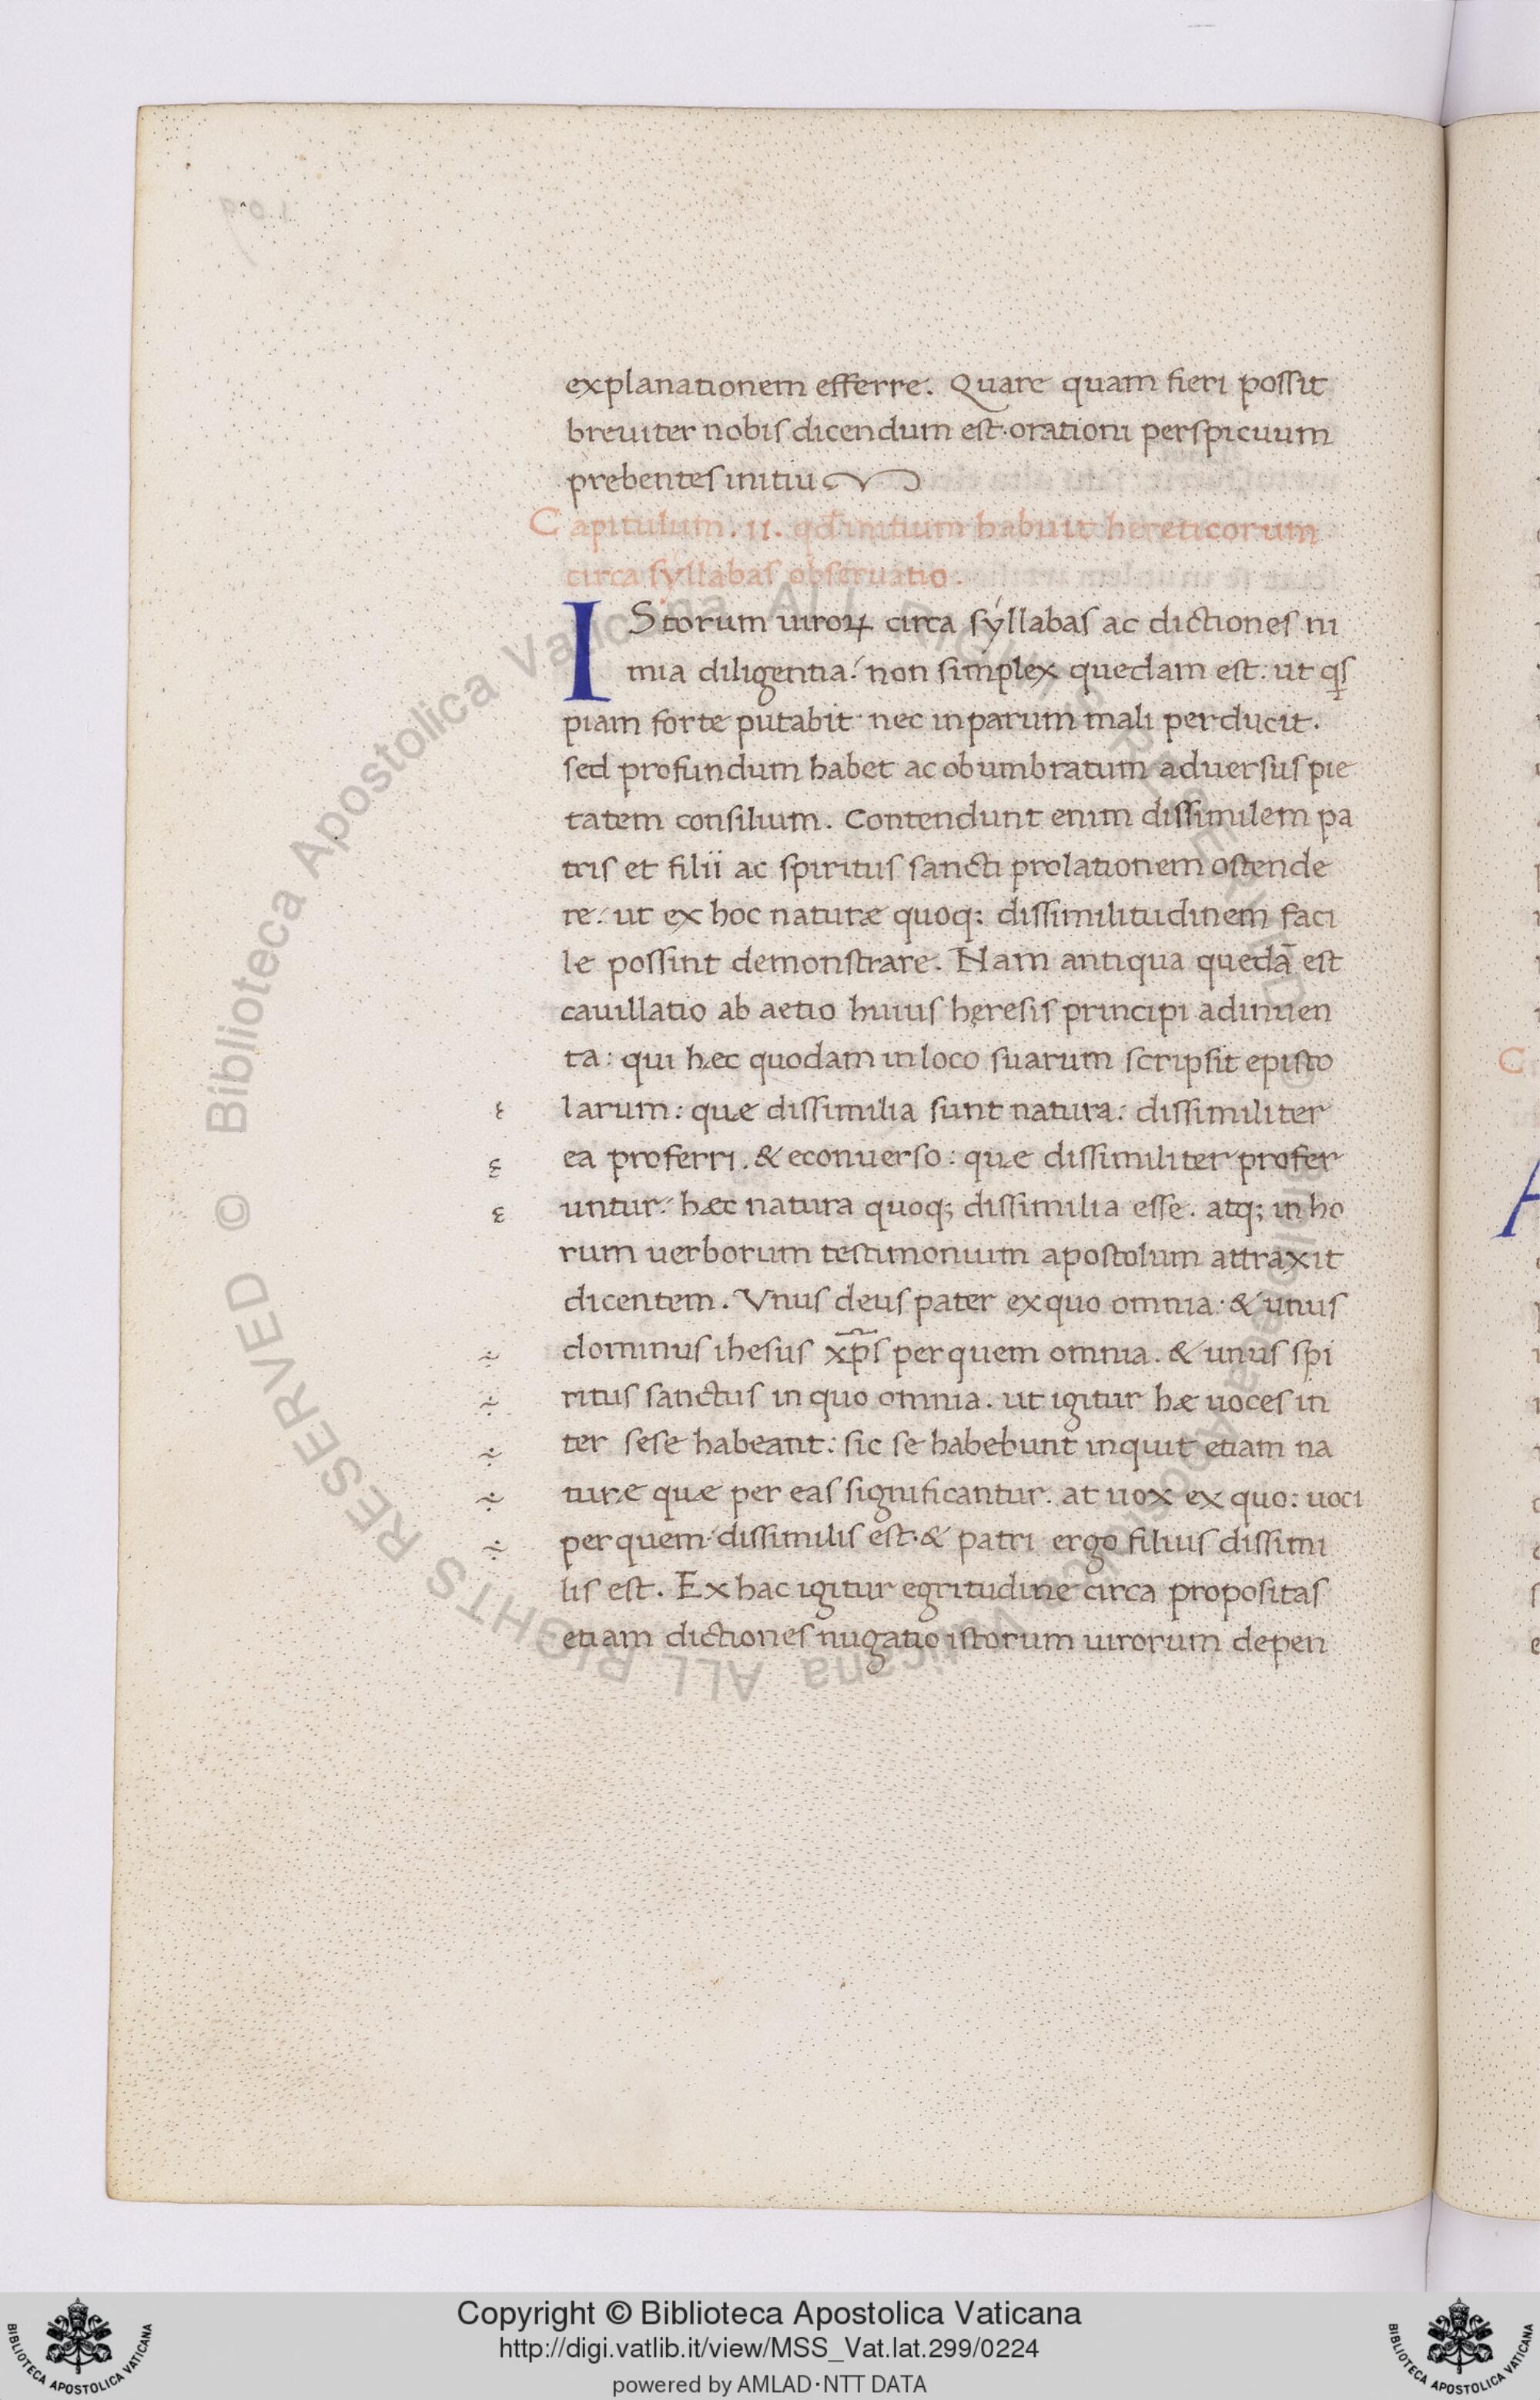 explanationem efferre. Quare quam fieri possit
breuiter nobis dicendum est. orationi perspicuum
prebentes initiu
Capitulum .II. qd̄ initium habuit hereticorum
circa syllabas obseruatio.
IStorum uiroꝝ circa sýllabas ac dictiones ni
mia diligentia: non simplex quedam est. ut qs
piam forte putabit nec in parum mali perducit.
sed profundum habet ac obumbratum aduersus pie
tatem consilium. Contendunt enim dissimilem pa
tris et filii ac spiritus sancti prolationem ostende
re: ut ex hoc naturæ quoq; dissimilitudinem faci
le possint demonstrare. Nam antiqua quedā est
cauillatio ab aetio huius hęresis principi adinuen
ta: qui hæc quodam in loco suarum scripsit episto
larum: quæ dissimilia sunt natura: dissimiliter
ea proferri. & econuerso: quæ dissimiliter profer
untur: hæc natura quoq; dissimilia esse. atq; in ho
rum uerborum testimonium apostolum attraxit
dicentem. Vnus deus pater ex quo omnia: & unus
dominus ihesus xp̄s per quem omnia. & unus spi
ritus sanctus in quo omnia. ut igitur hæ uoces in
ter sese habeant: sic se habebunt inquit etiam na
turæ quæ per eas significantur. at uox ex quo: uoci
per quem dissimilis est. & patri ergo filius dissimi
lis est. Ex hac igitur egritudine circa propositas
etiam dictiones nugatio istorum uirorum depen
Copyright © Biblioteca Apostolica Vaticana
http://digi.vatlib.it/view/MSS_Vat.lat.299/0224
powered by AMLAD·NTT DATA